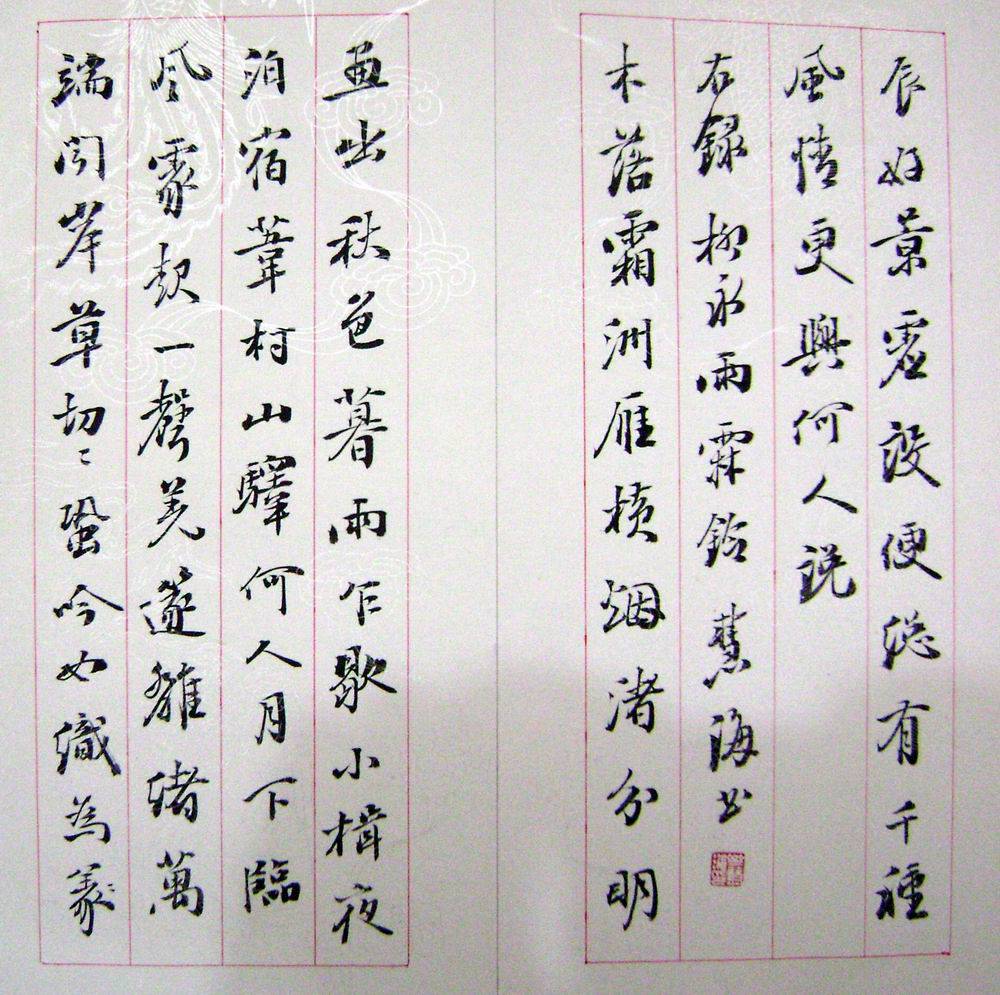 辰好景虛設便縱有千種
風情更與何人說
右錄柳永雨霖鈴 慧海书
木落霜洲雁橫烟渚分明
畫出秋色暮雨乍歇小楫夜
泊宿葦村山驛何人月下臨
风處起一聲羌篴離緒萬
端聞岸草切〻蛩吟如織為